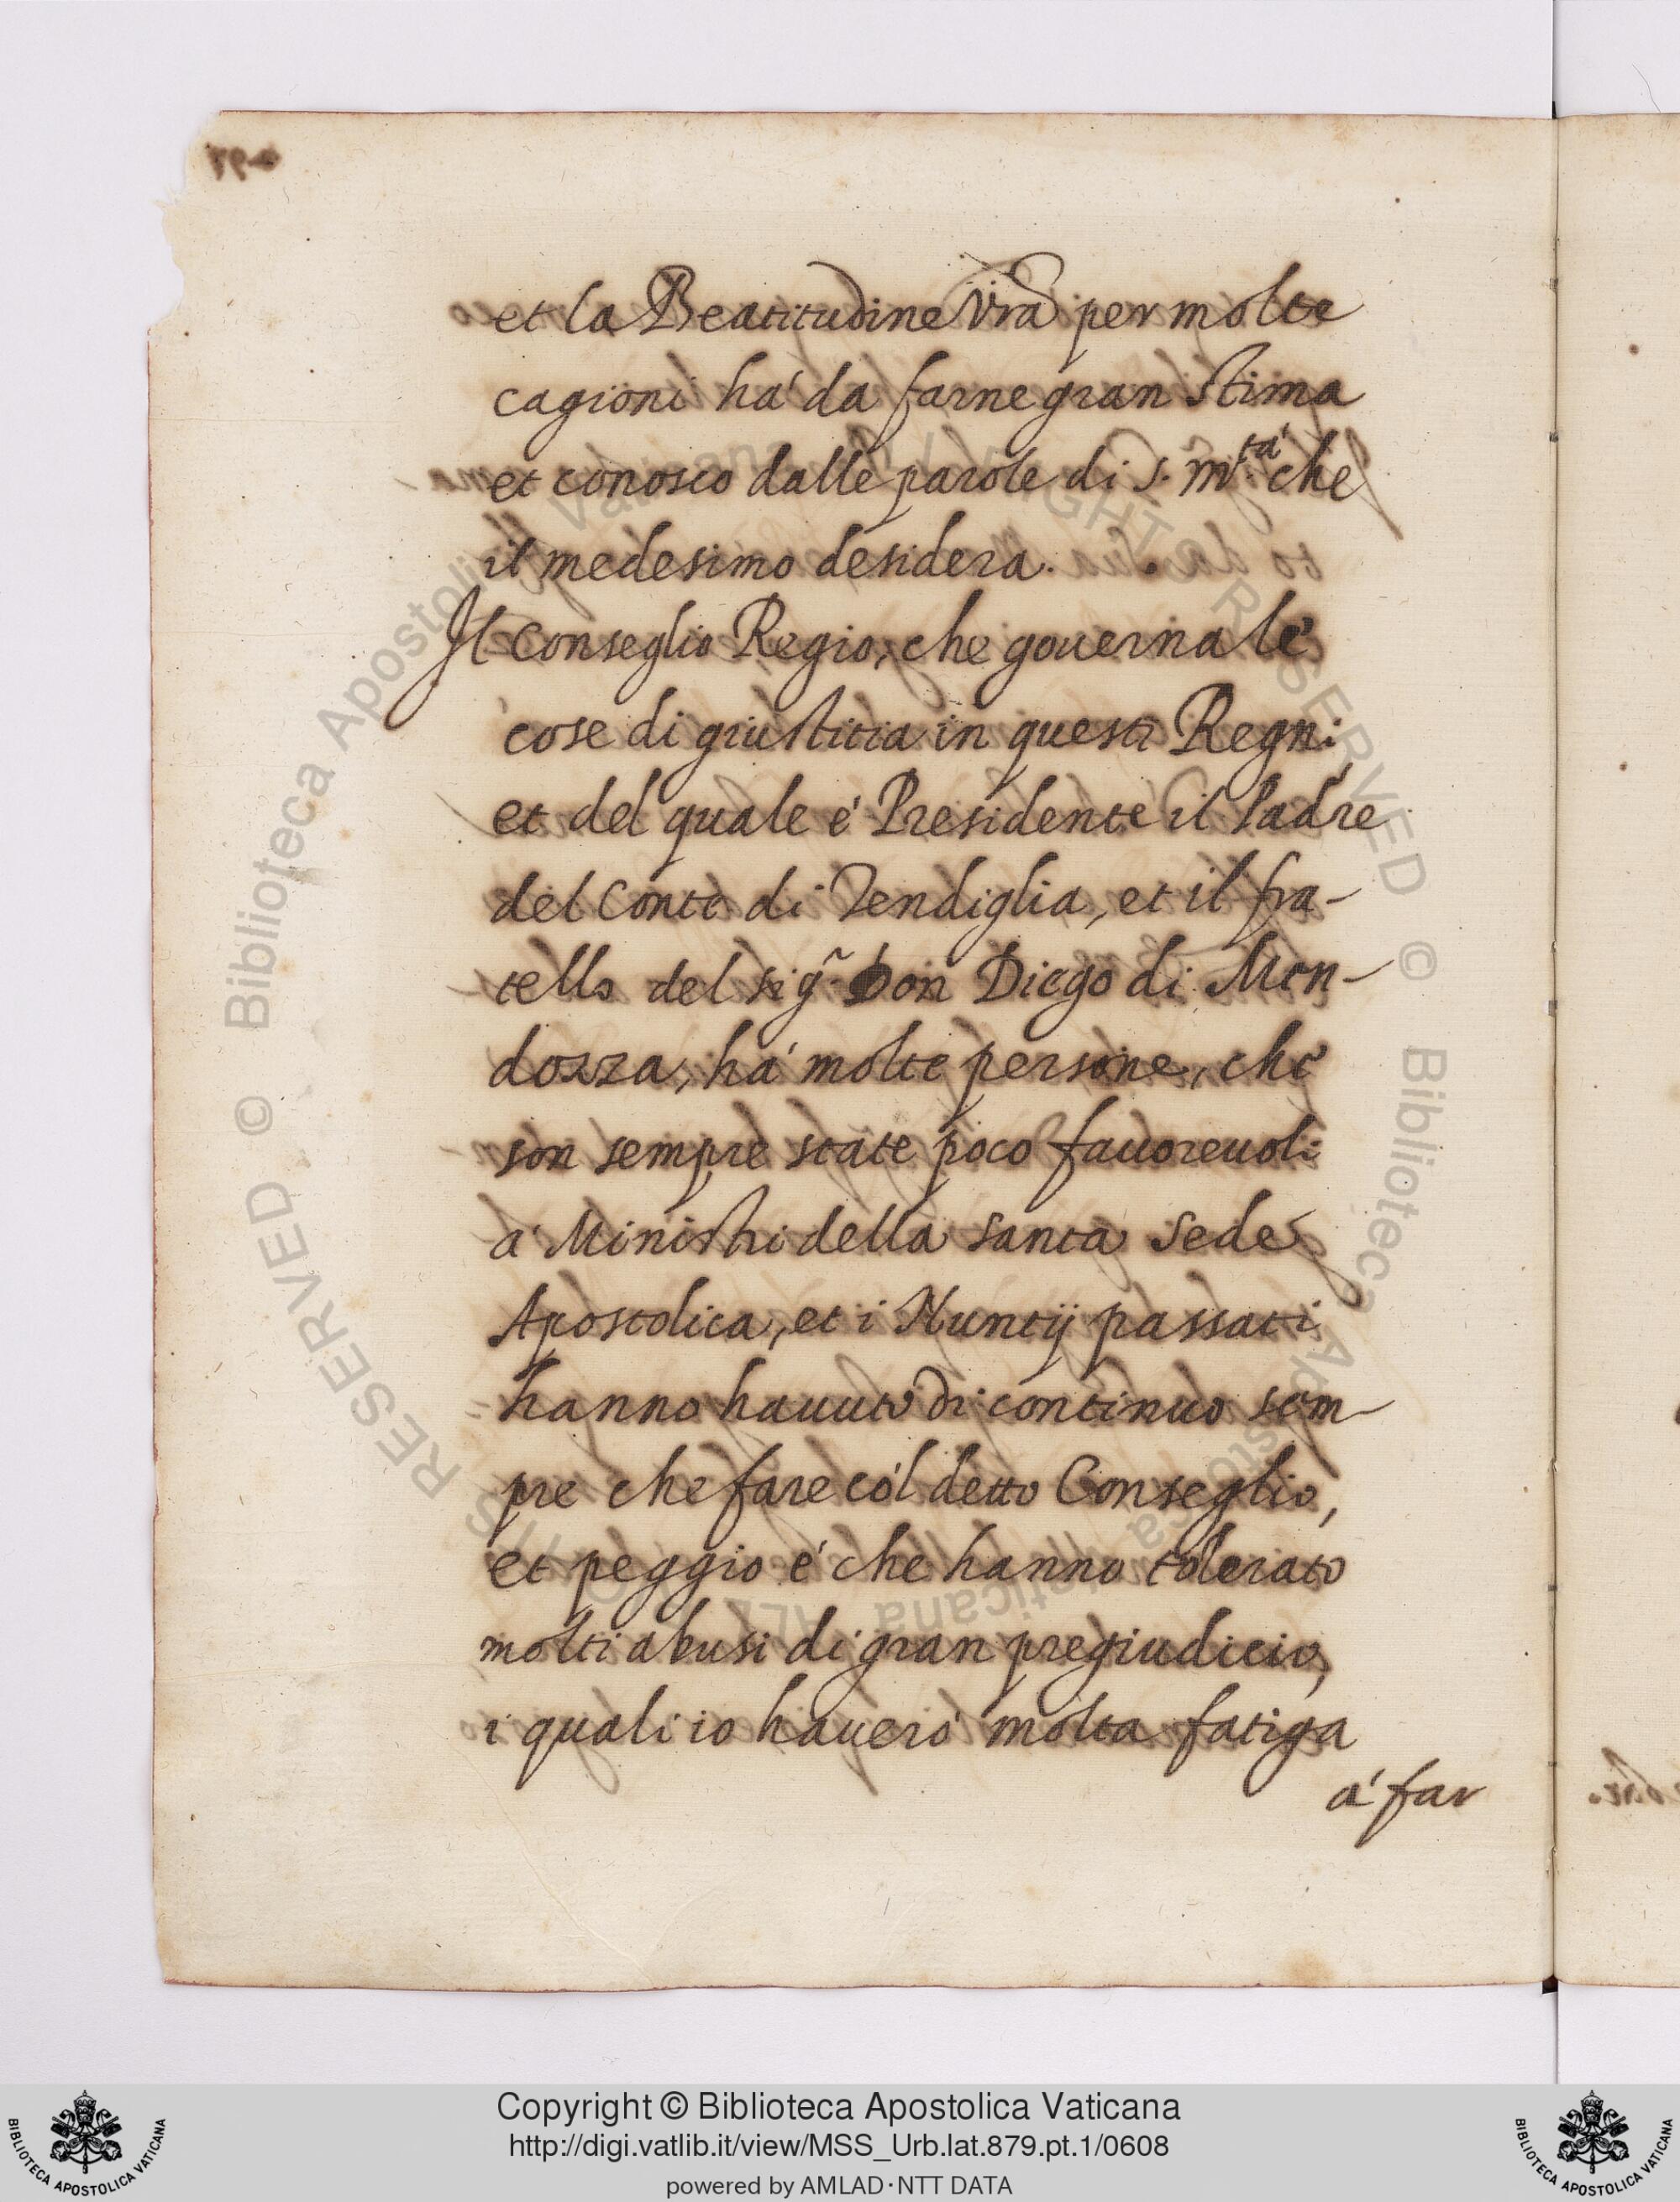 et la Beatitudine Vra per molte
cagioni há da farne gran stima
et conosco dalle parole di S. M.tá che
il medesimo desidera.
Il Conseglio Regio, che gouerna le
cose di giustitia in questi Regni,
et del quale é Presidente il Padre
del Conte di Tendiglia, et il fra-
tello del sig.r Don Diego di Men-
dozza, há molte persone, che
son sempre state poco fauoreuoli
á Ministri della Santa Sede
Apostolica, et i Nuntij passati
hanno hauuto di continuo sem-
pre che fare cól detto Conseglio,
et peggio é che hanno tolerato
molti abusi di gran pregiudicio,
i quali io haueró molta fatiga
á far
Copyright © Biblioteca Apostolica Vaticana
http://digi.vatlib.it/view/MSS_Urb.lat.879.pt.1/0608
powered by AMLAD·NTT DATA